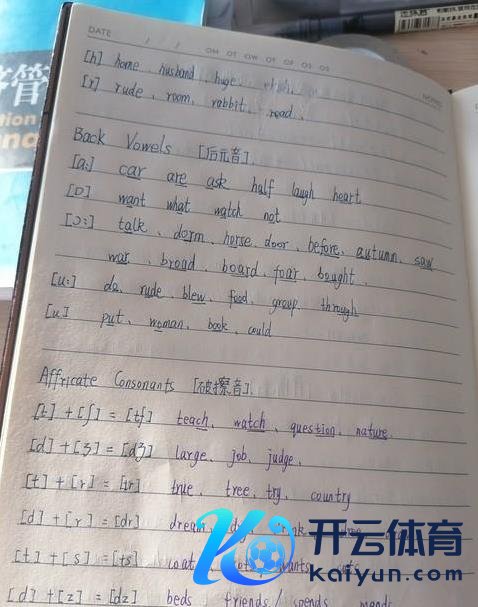 DATE / /
[h] home、husband、huge、
[r] rude、room、rabbit、read、
Back Vowels [后元音]
[ɑ:] car are ask half laugh heart
[ɒ] want what watch not
[ɔ:] talk、dorm、horse、door、before、autumn、saw
war、broad、board、four、bought、
[u:] do、rude、blew、food、group、through
[u] put、woman、book、could
Affricate Consonants [破擦音]
[t]+[ʃ]=[tʃ] teach、watch、question、nature、
[d]+[ʒ]=[dʒ] large、job、judge、
[t]+[r]=[tr] true、tree、try、country
[d]+[r]=[dr] dream
[t]+[s]=[ts]
[d]+[z]=[dz] beds、friends/spends
开云体育
kaiyun.com